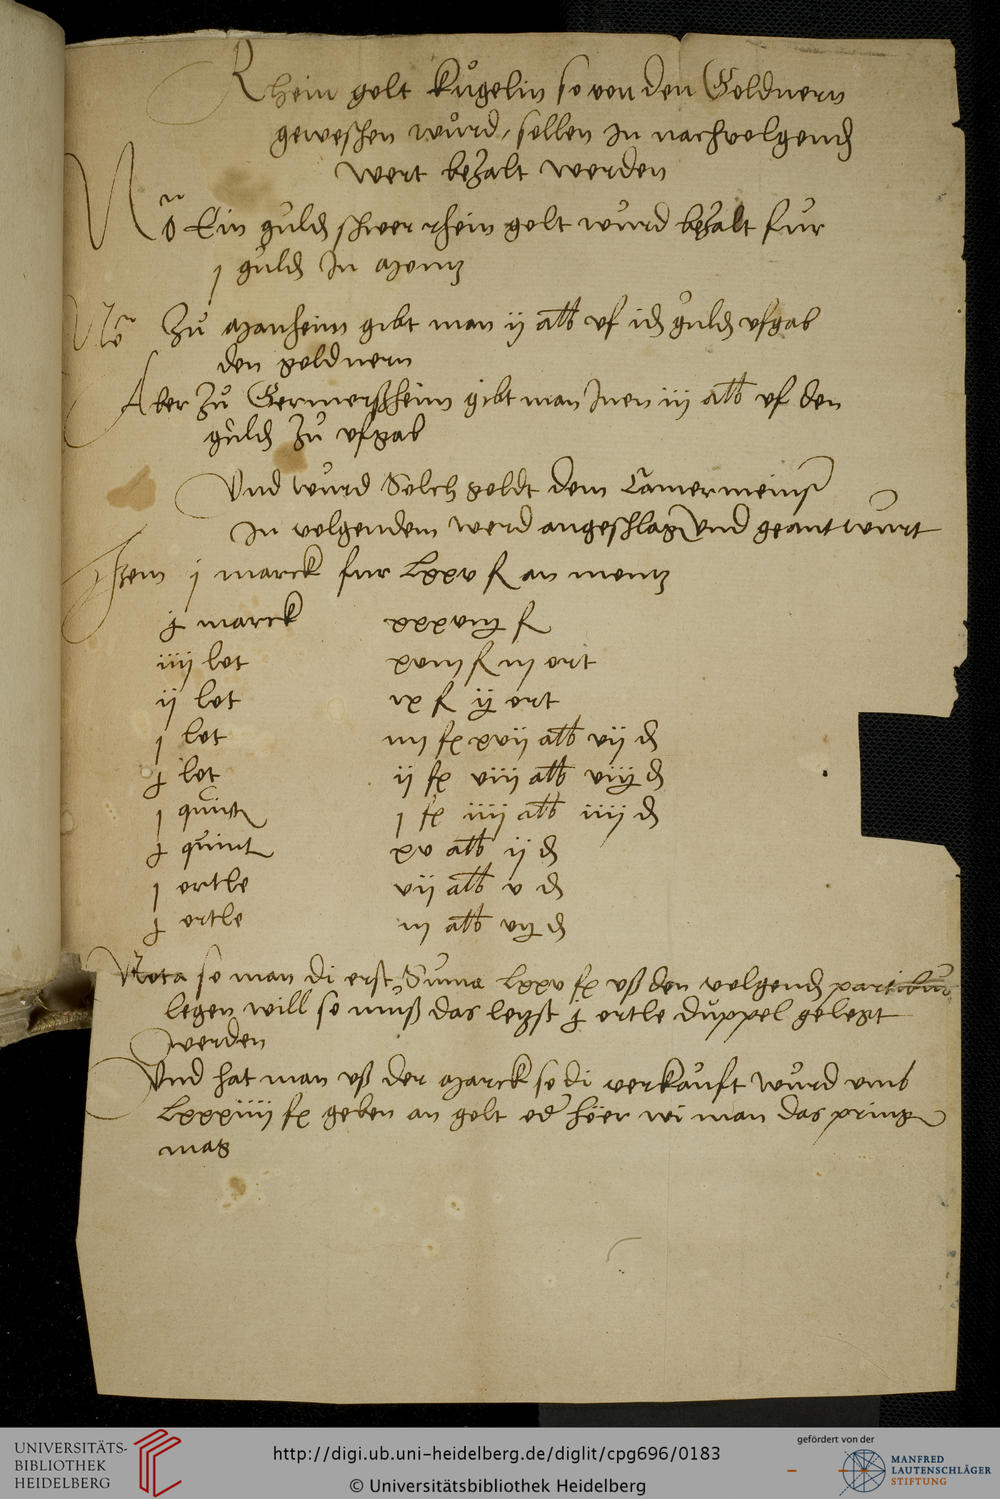 Rhein golt kugelin so von den Goldnern
geweschen wurd, sollen in nachvolgend
wert bezalt werden
No Ein guld schwer rhein golt wurd bezalt fur
j guld in montz
No Zu manheim gibt man ij alb uf id guld ufgab
den goldnern
Aber zu Germerszheim gibt man Inen iij alb uf den
guld zu ufgab
Und wurd Solch goldt dem Camermeinst
In volgendem werd angeschlagen und geantwurt
Item j marck fur Lxxv fl an montz
j marck xxxvij fl
iiij lot xviij fl iij ort
ij lot ix fl ij ort
j lot iiij fl xvij alb vij d
j lot ij fl viij alb viij d
j quint j fl iiij alb iiij d
j quint xv alb ij d
j ortle vij alb v d
j ortle iij alb vij d
Nota so man di erst Suma Lxxv fl usz den volgend partibus
legen will so musz das letzst j ortle duppel gelegt
werden
Und hat man usz der marck so di verkauft wurd umb
Lxxxiiij fl geben an golt od hoer wi man das pringen
mag
UNIVERSITÄTS-
BIBLIOTHEK
HEIDELBERG
http://digi.ub.uni-heidelberg.de/diglit/cpg696/0183
© Universitätsbibliothek Heidelberg
gefördert von der
MANFRED
LAUTENSCHLÄGER
STIFTUNG